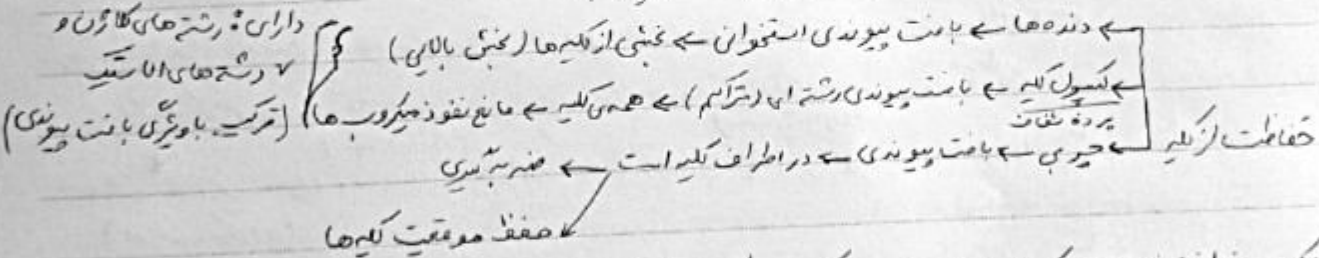 حفاظت از کلیه
← دنده‌ها ← بافت پیوندی استخوانی ← بخشی از کلیه‌ها (بخش بالایی)
← کپسول کلیه ← بافت پیوندی رشته‌ای (متراکم) ← همه‌ی کلیه ← مانع نفوذ میکروب‌ها
پرده شفاف
← چربی ← بافت پیوندی ← در اطراف کلیه است ← ضربه‌گیری
← حفظ موقعیت کلیه‌ها
دارای: رشته‌های کلاژن و
رشته‌های الاستیک
(ترکیب باویژگی بافت پیوندی)